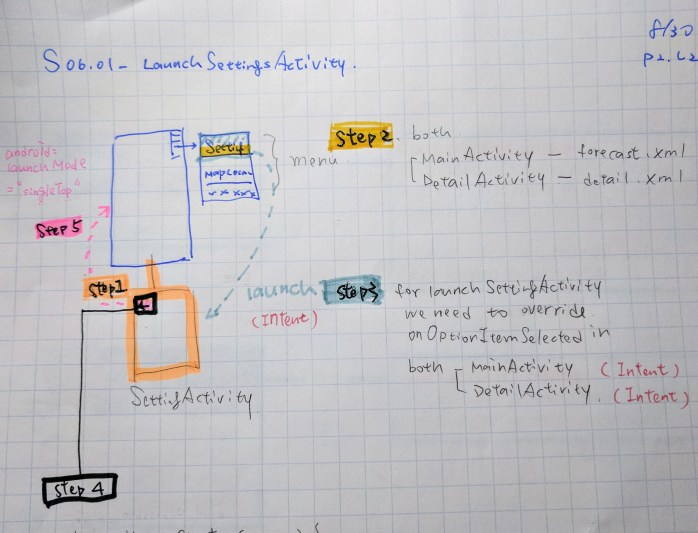 8/30
P2.L2
S06.01 - Launch Settings Activity.
android:
launchMode
= "singleTop"
Step 5
Step 1
Setting
Map Local
menu
Step 2. both
MainActivity - forecast.xml
DetailActivity - detail.xml
launch
(Intent)
Step 3 for launch SettingActivity
we need to override
onOptionItemSelected in
both MainActivity (Intent)
DetailActivity. (Intent)
SettingActivity
Step 4